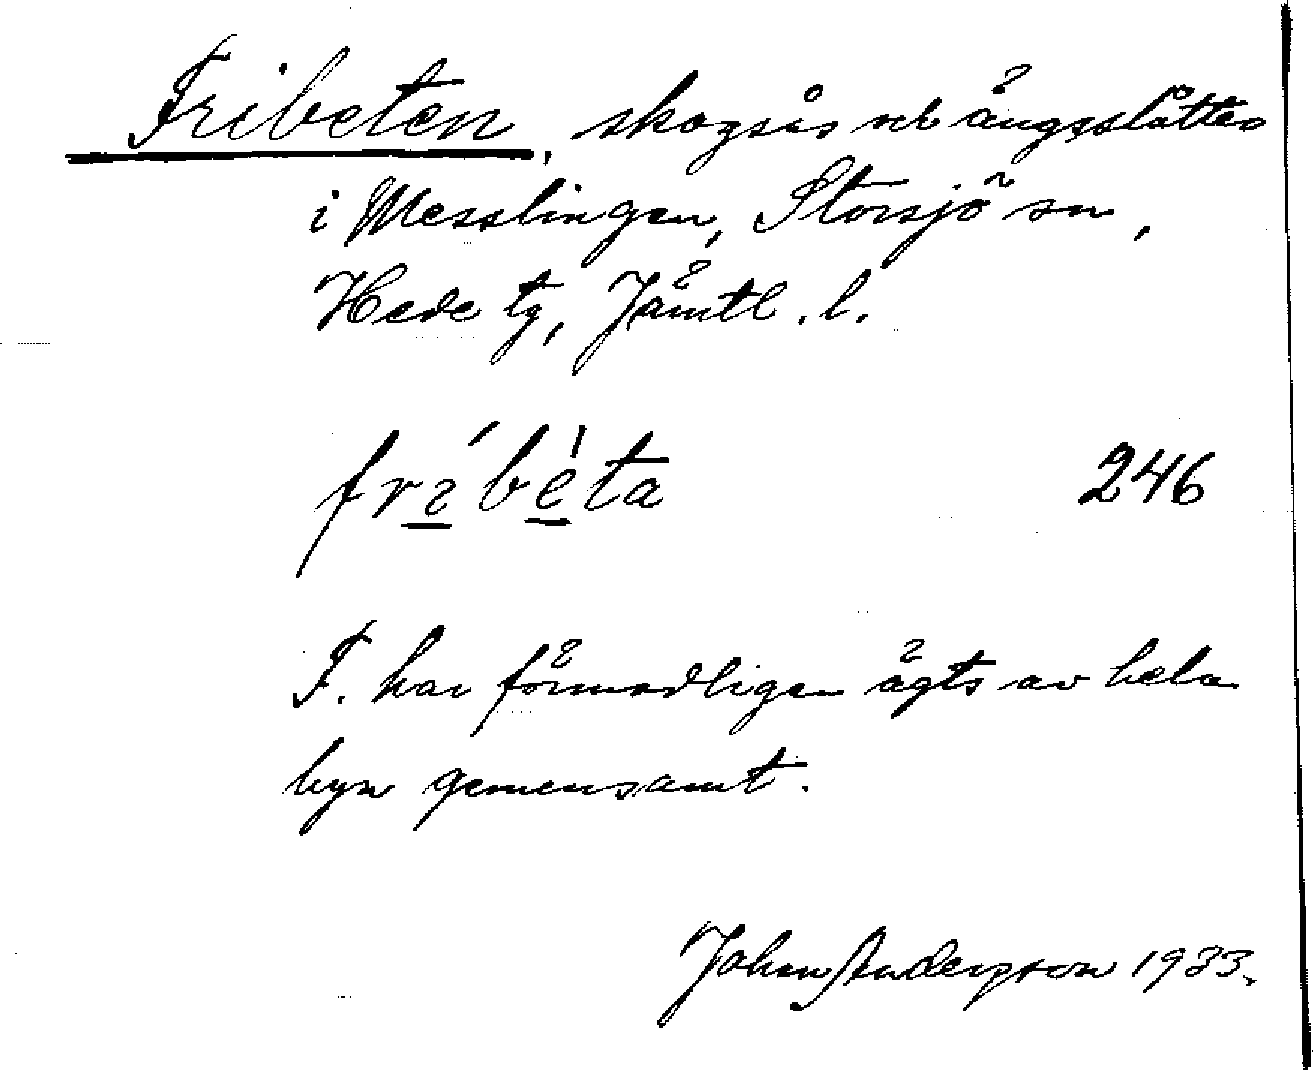 Fribeten, skogsås och ängsslåtter
i Messlingen, Storsjö sn,
Hede tg, Jämtl. l.
fríbèta 246
F. har förmodligen ägts av hela
byn gemensamt.
Johan Anderson 1933.